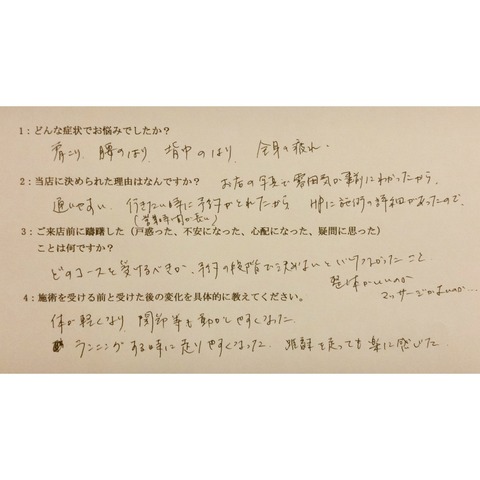 1：どんな症状でお悩みでしたか？
肩こり 腰のはり 背中のはり 全身の疲れ。
2：当店に決められた理由はなんですか？ お店の写真で雰囲気が事前にわかったから。
通いやすい。 行きたい時に予約がとれたから HPに施術の詳細があったので。
（営業時間が長い）
3：ご来店前に躊躇した（戸惑った、不安になった、心配になった、疑問に思った）
ことは何ですか？
どのコースを受けるべきか、予約の段階で決めないといけなかったこと
整体がいいのか
マッサージがよいのか…
4：施術を受ける前と受けた後の変化を具体的に教えてください。
体が軽くなり 関節等も動かしやすくなった。
ランニングする時に走りやすくなった。 距離を走っても楽に感じた